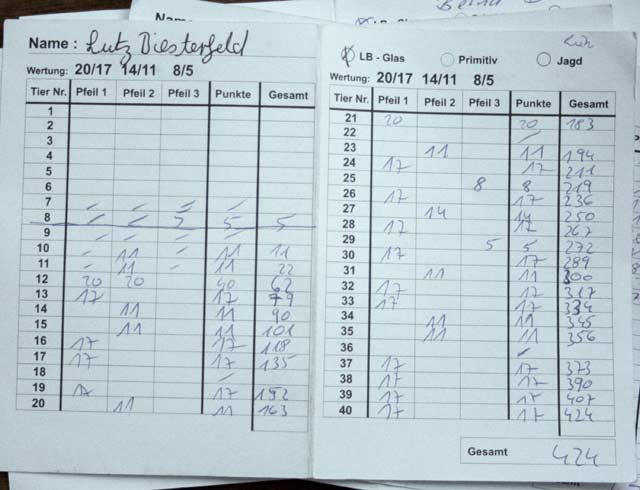 Name : Lutz Diesterfeld
Wertung: 20/17 14/11 8/5
Tier Nr. Pfeil 1 Pfeil 2 Pfeil 3 Punkte Gesamt
1
2
3
4
5
6
7 - - - -
8 - - 5 5 5
9 - - - -
10 - 11 - 11 11
11 - 11 - 11 22
12 20 20 40 62
13 17 17 79
14 11 11 90
15 11 11 101
16 17 17 118
17 17 17 135
18 -
19 17 17 152
20 11 11 163
LB - Glas Primitiv Jagd
Wertung: 20/17 14/11 8/5
Tier Nr. Pfeil 1 Pfeil 2 Pfeil 3 Punkte Gesamt
21 20 20 183
22 -
23 11 11 194
24 17 17 211
25 8 8 219
26 17 17 236
27 14 14 250
28 17 17 267
29 5 5 272
30 17 17 289
31 11 11 300
32 17 17 317
33 17 17 334
34 11 11 345
35 11 11 356
36 -
37 17 17 373
38 17 17 390
39 17 17 407
40 17 17 424
Gesamt 424